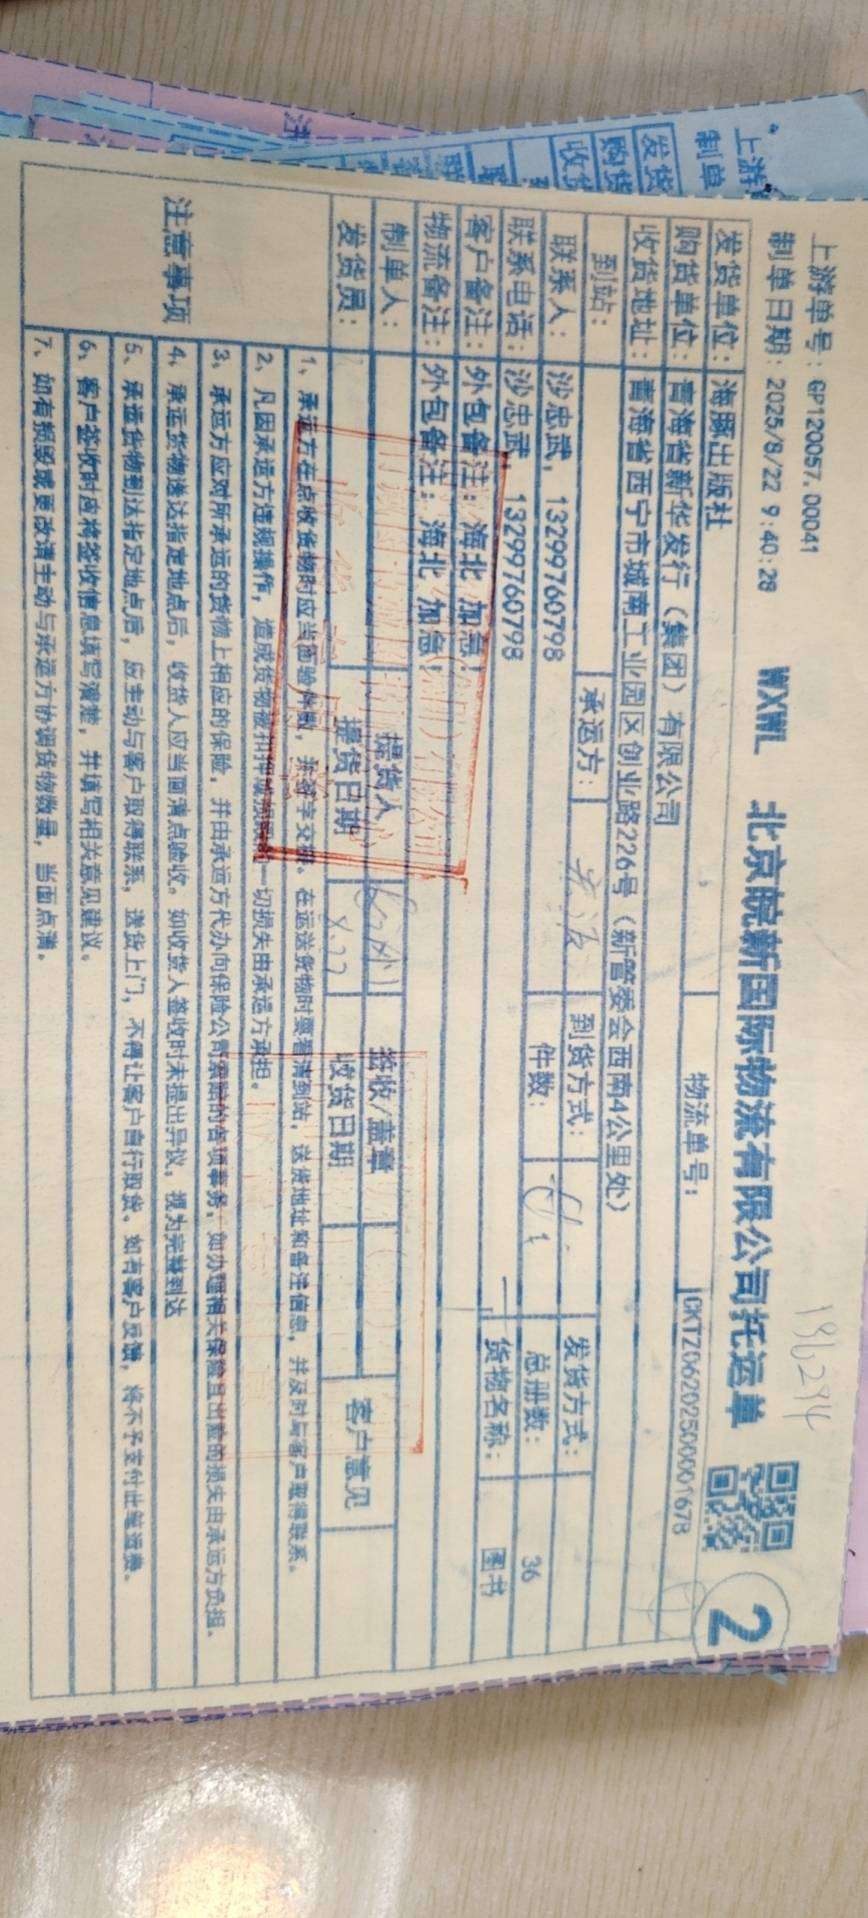 上游单号：GP120057.00041
制单日期：2025/8/22 9:40:28
WXWL 北京皖新国际物流有限公司托运单
196294
2
发货单位：海豚出版社
物流单号：CKTZ0620250001678
购货单位：青海省新华发行（集团）有限公司
收货地址：青海省西宁市城南工业园区创业路226号（新管委会西南4公里处）
到站：
承运方：
到货方式：
发货方式：
联系人：沙忠武，13299760798
件数：
总册数：36
联系电话：沙忠武，13299760798
货物名称：图书
客户备注：外包备注：海北 加急！
物流备注：外包备注：海北 加急！
制单人：
提货人
签收/盖章
客户意见
发货员：
提货日期 8.22
收货日期
注意事项
1、承运方在点收货物时应当面验件数，并签字交接。在运送货物时要看清到站，送货地址和备注信息，并及时与客户取得联系。
2、凡因承运方违规操作，造成货物被扣押或损毁的一切损失由承运方承担。
3、承运方应对所承运的货物上相应的保险，并由承运方代办向保险公司索赔的各项事务，如办理相关保险且出险的损失由承运方负担。
4、承运货物送达指定地点后，收货人应当面清点验收。如收货人签收时未提出异议，视为完整到达
5、承运货物到达指定地点后，应主动与客户取得联系，送货上门，不得让客户自行取货。如有客户反馈，将不予支付此笔运费。
6、客户签收时应将签收信息填写清楚，并填写相关意见建议。
7、如有损毁或要改请主动与承运方协调货物数量，当面点清。
上游
制单
发货
购货
收货